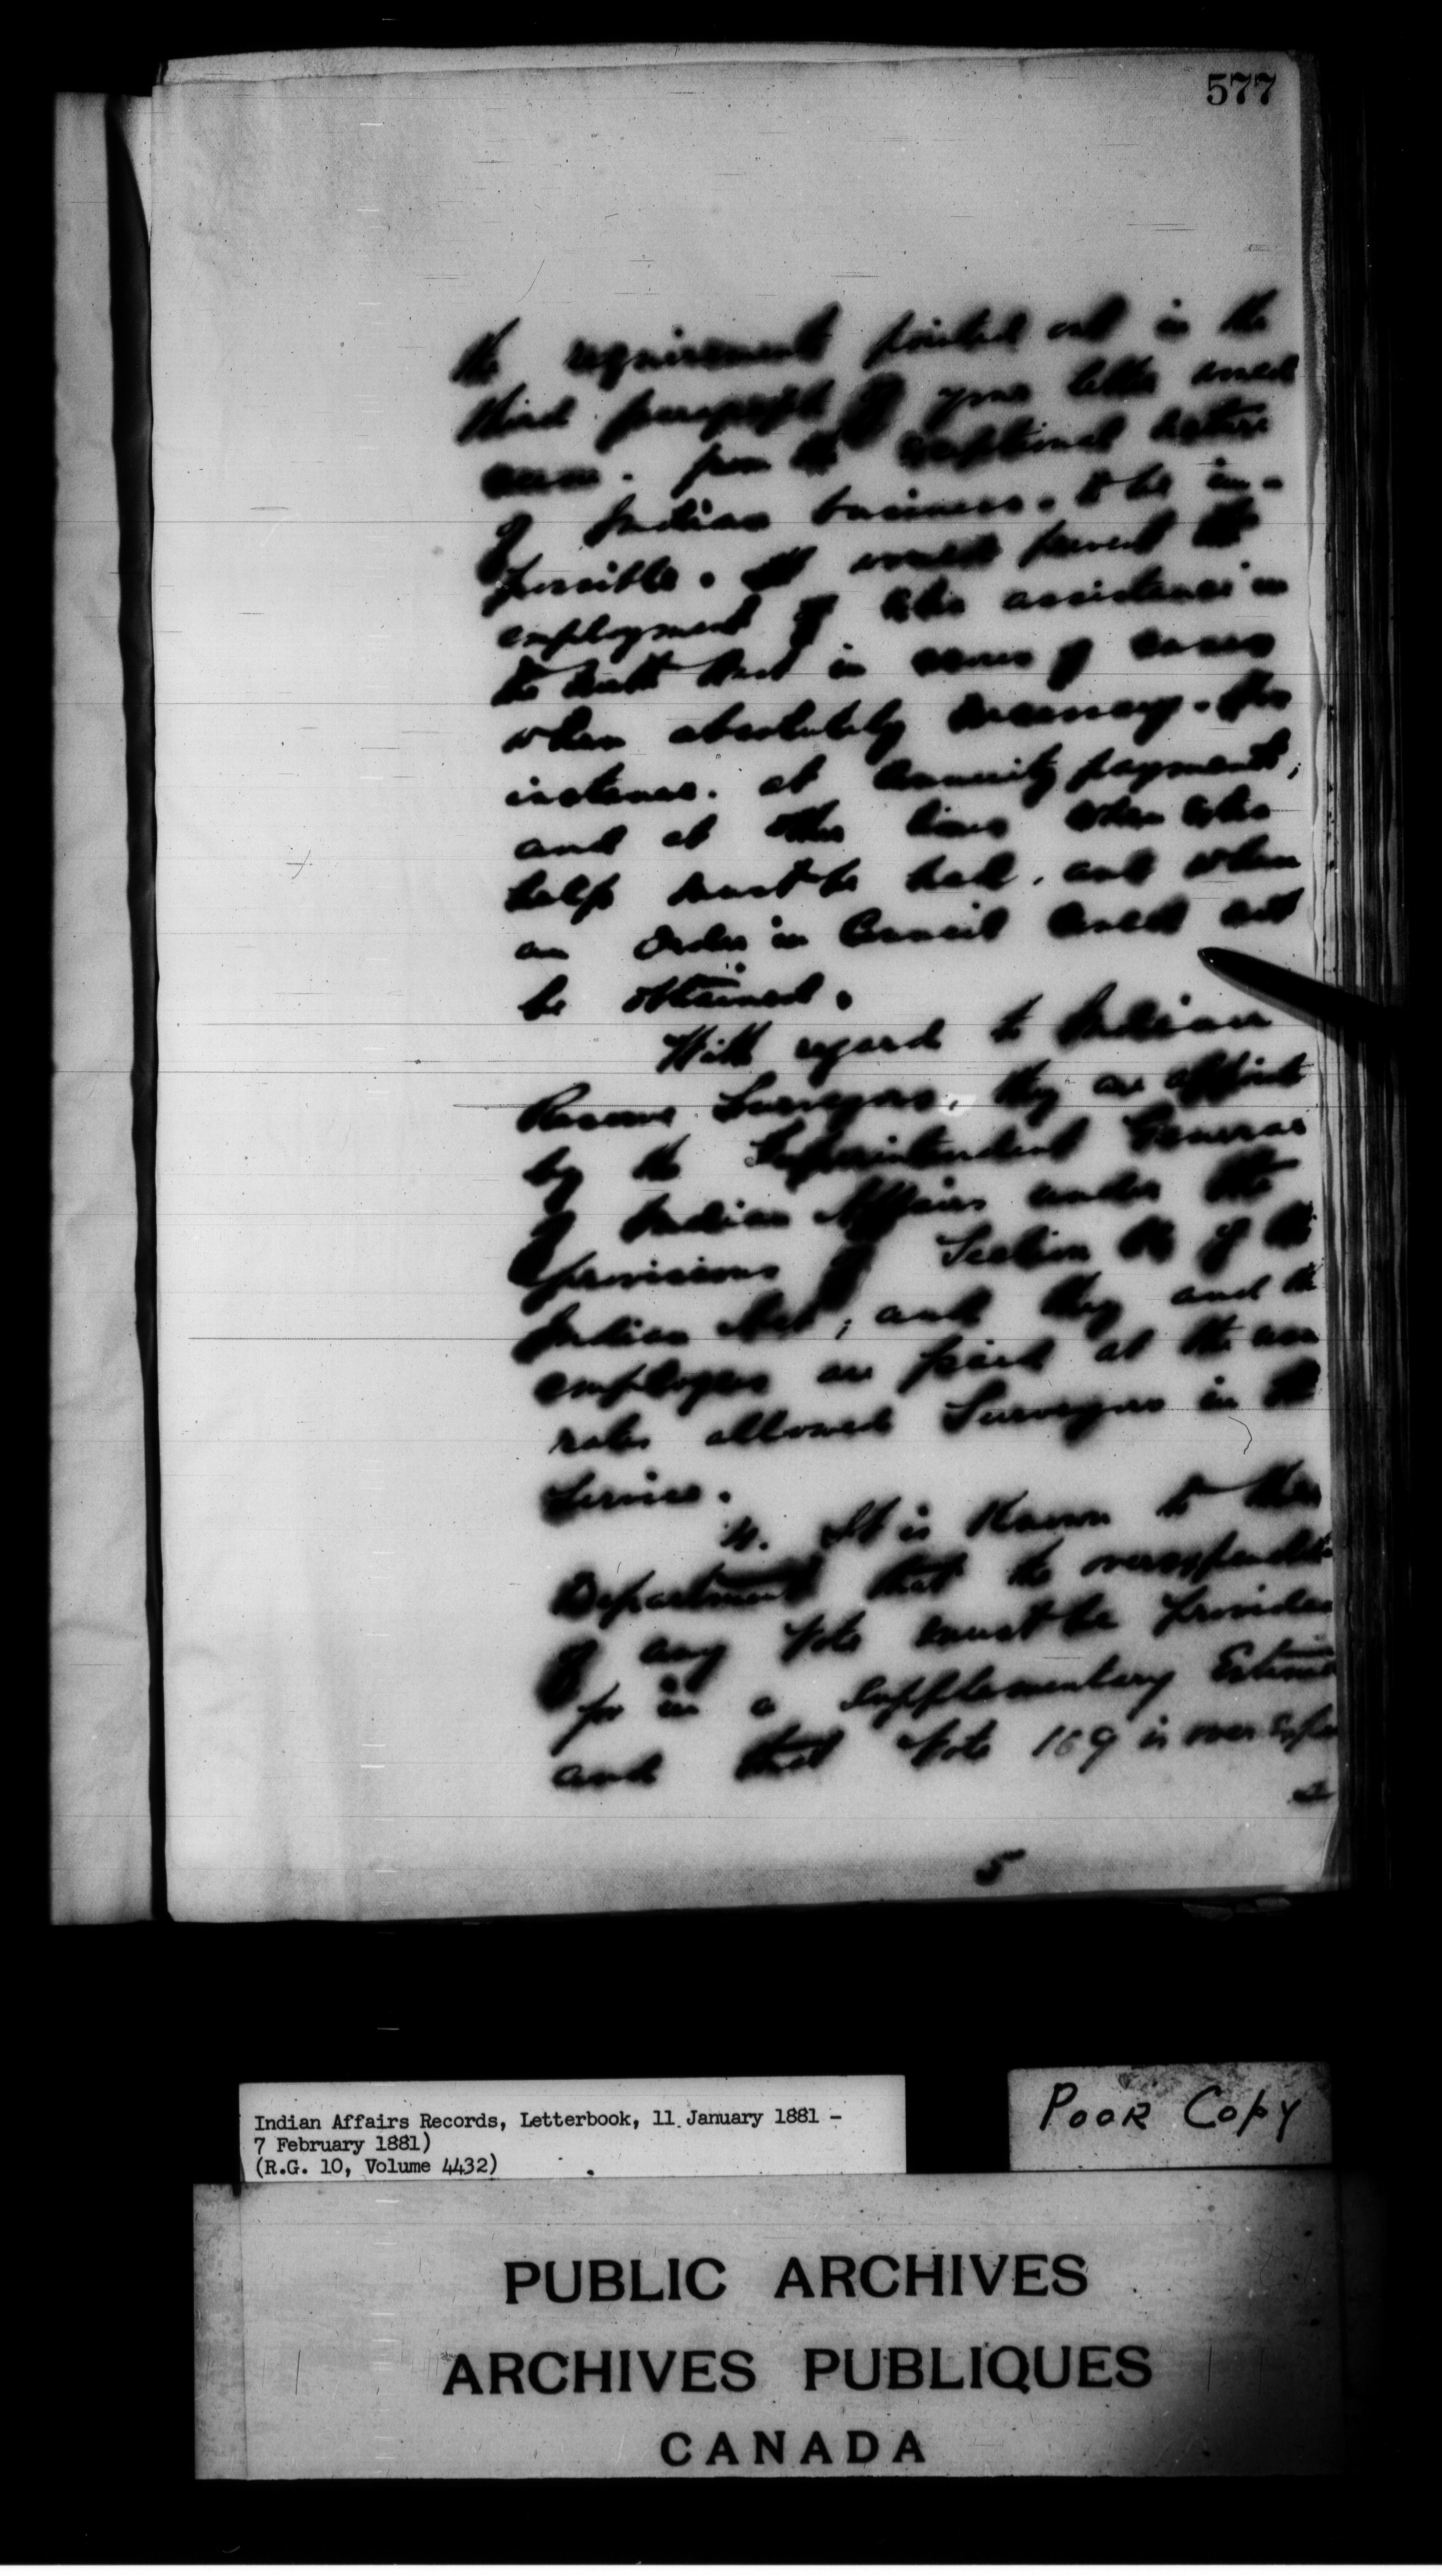 577
the requirement pointed out in the
third paragraph of your letter would
seem. from the exceptional nature
of Indian business. to be im-
possible. It would prevent the
employment of extra assistance in
the North West in cases
when absolutely necessary. for
instance. at Annuity payments;
and at other times when extra
help must be had. and when
an Order in Council could not
be obtained.
With regard to Indian
Reserve Surveyors. they are appoint
by the Superintendent General
of Indian Affairs under the
provisions of Section of the
Indian Act; and they and
employees are paid at the
rates allowed Surveyors in the
Service.
4. It is known to the
Department that the overexpendit
of any Vote must be provided
for in a Supplementary Estima
and that Vote 169 is over
5
Indian Affairs Records, Letterbook, 11 January 1881 -
7 February 1881)
(R.G. 10, Volume 4432)
POOR COPY
PUBLIC ARCHIVES
ARCHIVES PUBLIQUES
CANADA